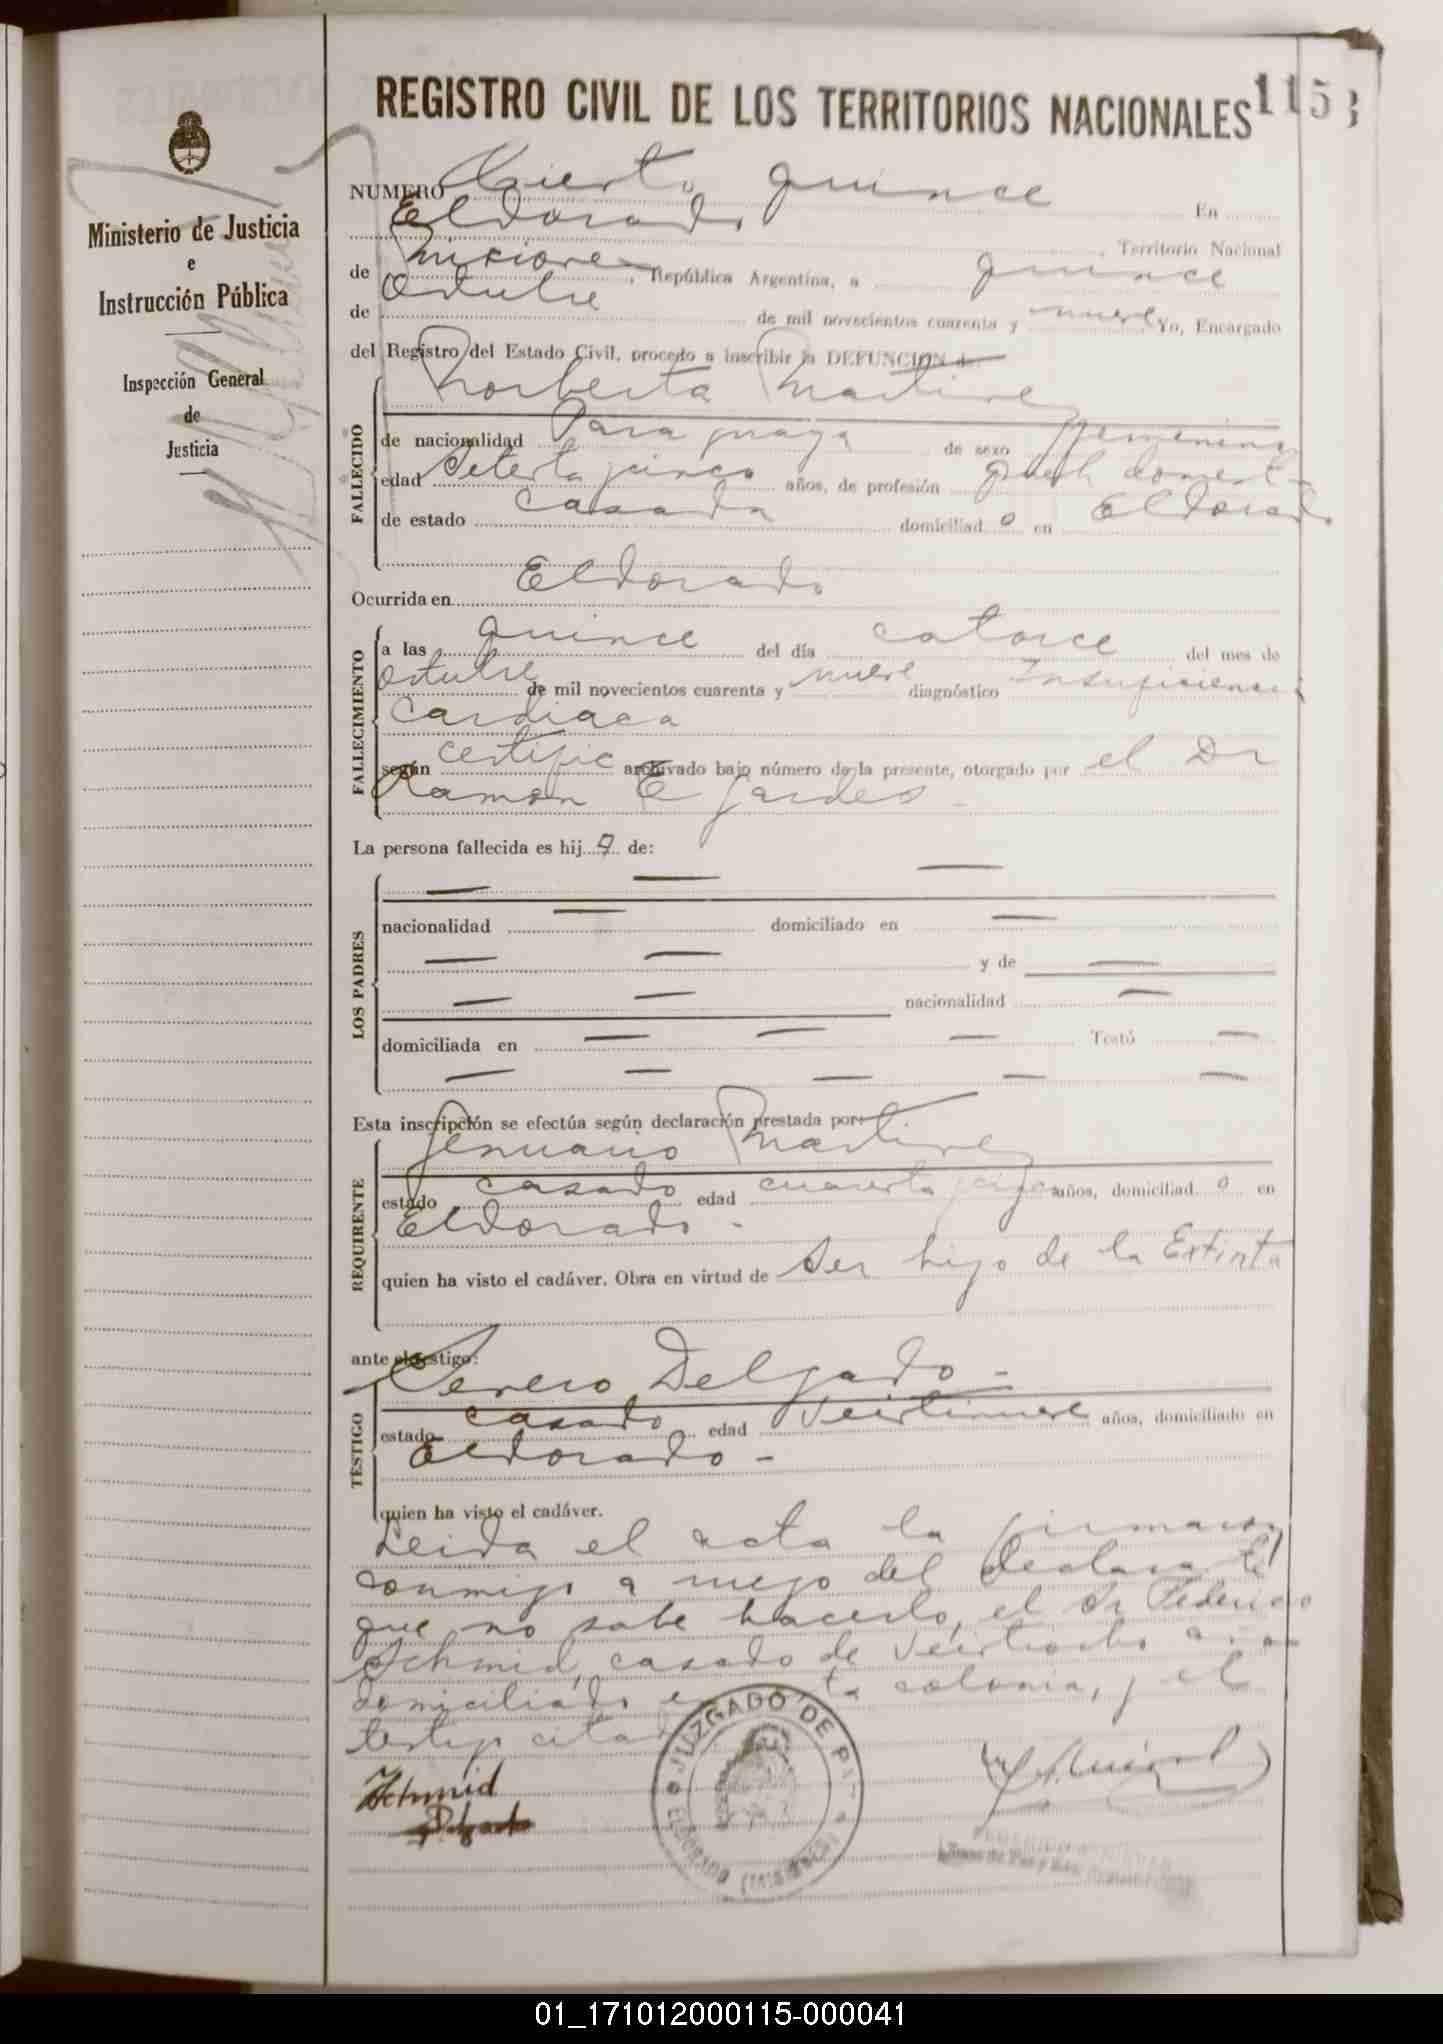 REGISTRO CIVIL DE LOS TERRITORIOS NACIONALES
1153
Ministerio de Justicia
e
Instrucción Pública
Inspección General
de
Justicia
NUMERO Ciento quince En
Eldorado, Territorio Nacional
de Misiones, República Argentina, a quince
de Octubre de mil novecientos cuarenta y nueve Yo, Encargado
del Registro del Estado Civil, procedo a inscribir la DEFUNCION de:
Norberta Martinez
FALLECIDO
de nacionalidad Paraguaya de sexo femenino
edad Setenta cinco años, de profesión queh domest
de estado casada domiciliad o en Eldorado
Ocurrida en Eldorado
FALLECIMIENTO
a las quince del día catorce del mes de
Octubre de mil novecientos cuarenta y nueve diagnóstico Insuficiencia
cardiaca
según certific archivado bajo número de la presente, otorgado por el Dr
Ramon E
La persona fallecida es hij a de:
LOS PADRES
nacionalidad — domiciliado en —
— — y de —
— — nacionalidad —
domiciliada en — — — Testó —
— — — — —
Esta inscripción se efectúa según declaración prestada por:
Jenuario Martinez
REQUIRENTE
estado casado edad cuarenta años, domiciliad o en
Eldorado -
quien ha visto el cadáver. Obra en virtud de ser hijo de la Extinta
ante el testigo:
Sereio Delgado -
TESTIGO
estado casado edad veintinueve años, domiciliado en
Eldorado -
quien ha visto el cadáver.
Leida el acta la firmaron
conmigo a ruego del declarante
que no sabe hacerlo, el Sr Federico
Schmid, casado de veintiocho años
domiciliado en ta colonia, y el
testigo citado
JUZGADO DE PAZ
ELDORADO (MISIONES)
Schmid
Delgado
01_171012000115-000041